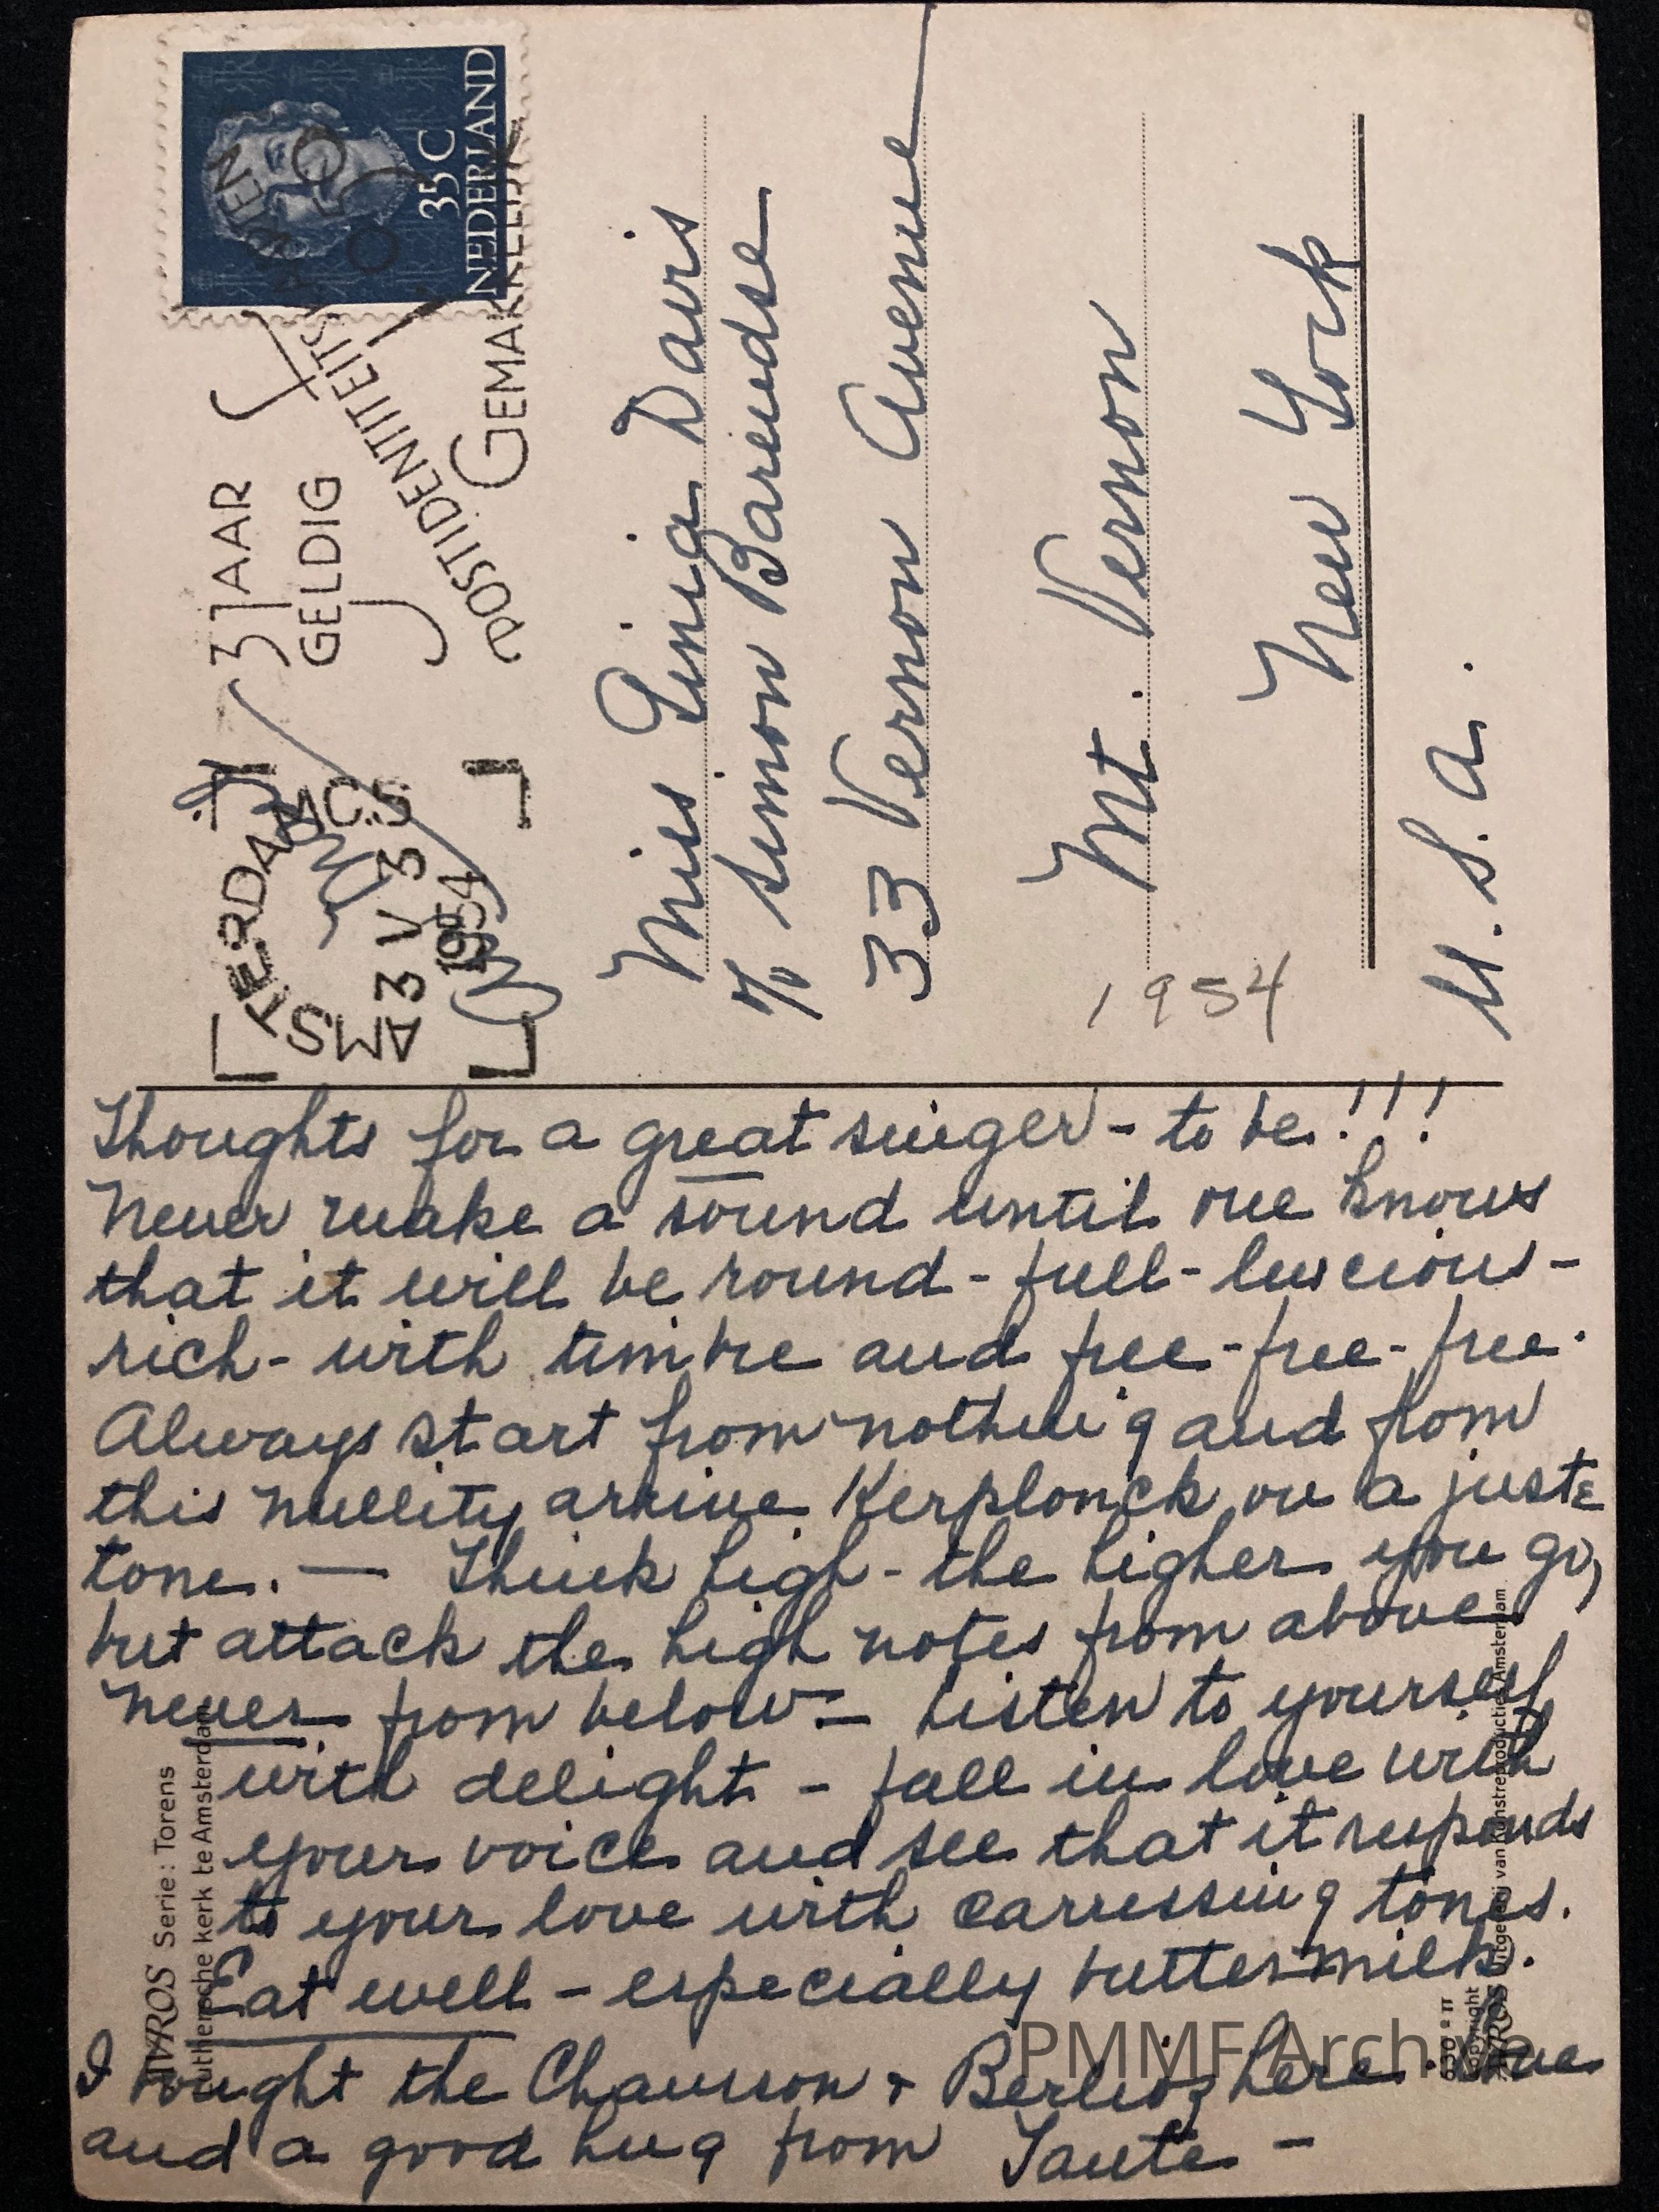 Thoughts for a great singer - to be!!!
Never make a sound until one knows
that it will be round - full - luscious -
rich - with timbre and free - free - free.
Always start from nothing and from
this nullity arrive Kerplonck on a juste
tone. — Think high - the higher you go,
but attack the high notes from above
never from below — Listen to yourself
with delight - fall in love with
your voice and see that it responds
to your love with carressing tones.
Eat well - especially buttermilk.
I bought the Chausson + Berlioz here. Love
and a good hug from Tante -
Miss Ginia Davis
% Simon Barendse
33 Vernon Avenue
Mt. Vernon
New York
U.S.A.
1954
AMSTERDAM C.S
3 V 3
1954
3 JAAR
GELDIG
POSTIDENTITEITS
GEMAKKELIJK
35 C
NEDERLAND
VIVROS Serie: Torens
Luthersche kerk te Amsterdam
Copyright
VIVROS Uitgeverij van Kunstreproducties Amsterdam
PMMF Archive